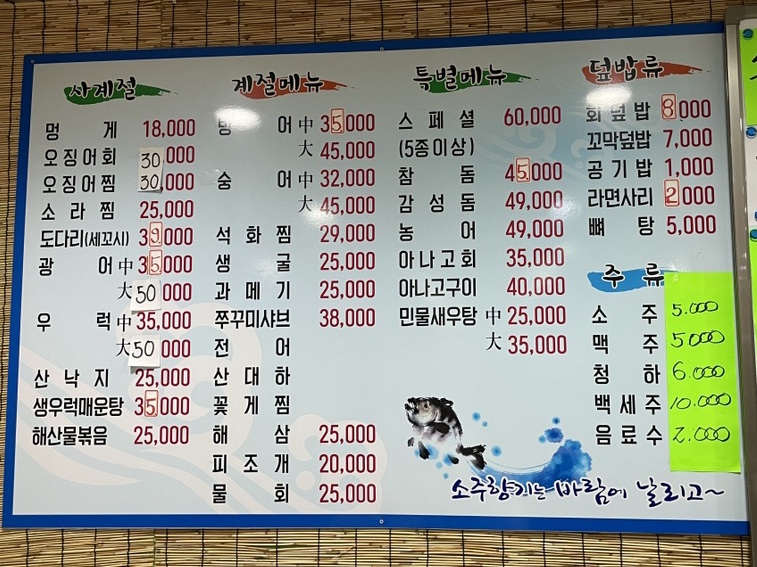 사계절
멍게 18,000
오징어회 30,000
오징어찜 30,000
소라찜 25,000
도다리(세꼬시) 39,000
광어 中 35,000
大 50,000
우럭 中 35,000
大 50,000
산낙지 25,000
생우럭매운탕 35,000
해산물볶음 25,000
계절메뉴
방어 中 35,000
大 45,000
숭어 中 32,000
大 45,000
석화찜 29,000
생굴 25,000
과메기 25,000
쭈꾸미샤브 38,000
전어
산대하
꽃게찜
해삼 25,000
피조개 20,000
물회 25,000
특별메뉴
스페셜 60,000
(5종이상)
참돔 45,000
감성돔 49,000
농어 49,000
아나고회 35,000
아나고구이 40,000
민물새우탕 中 25,000
大 35,000
덮밥류
회덮밥 8,000
꼬막덮밥 7,000
공기밥 1,000
라면사리 2,000
뼈탕 5,000
주류
소주 5.000
맥주 5.000
청하 6.000
백세주 10.000
음료수 2.000
소주향기는 바람에 날리고~